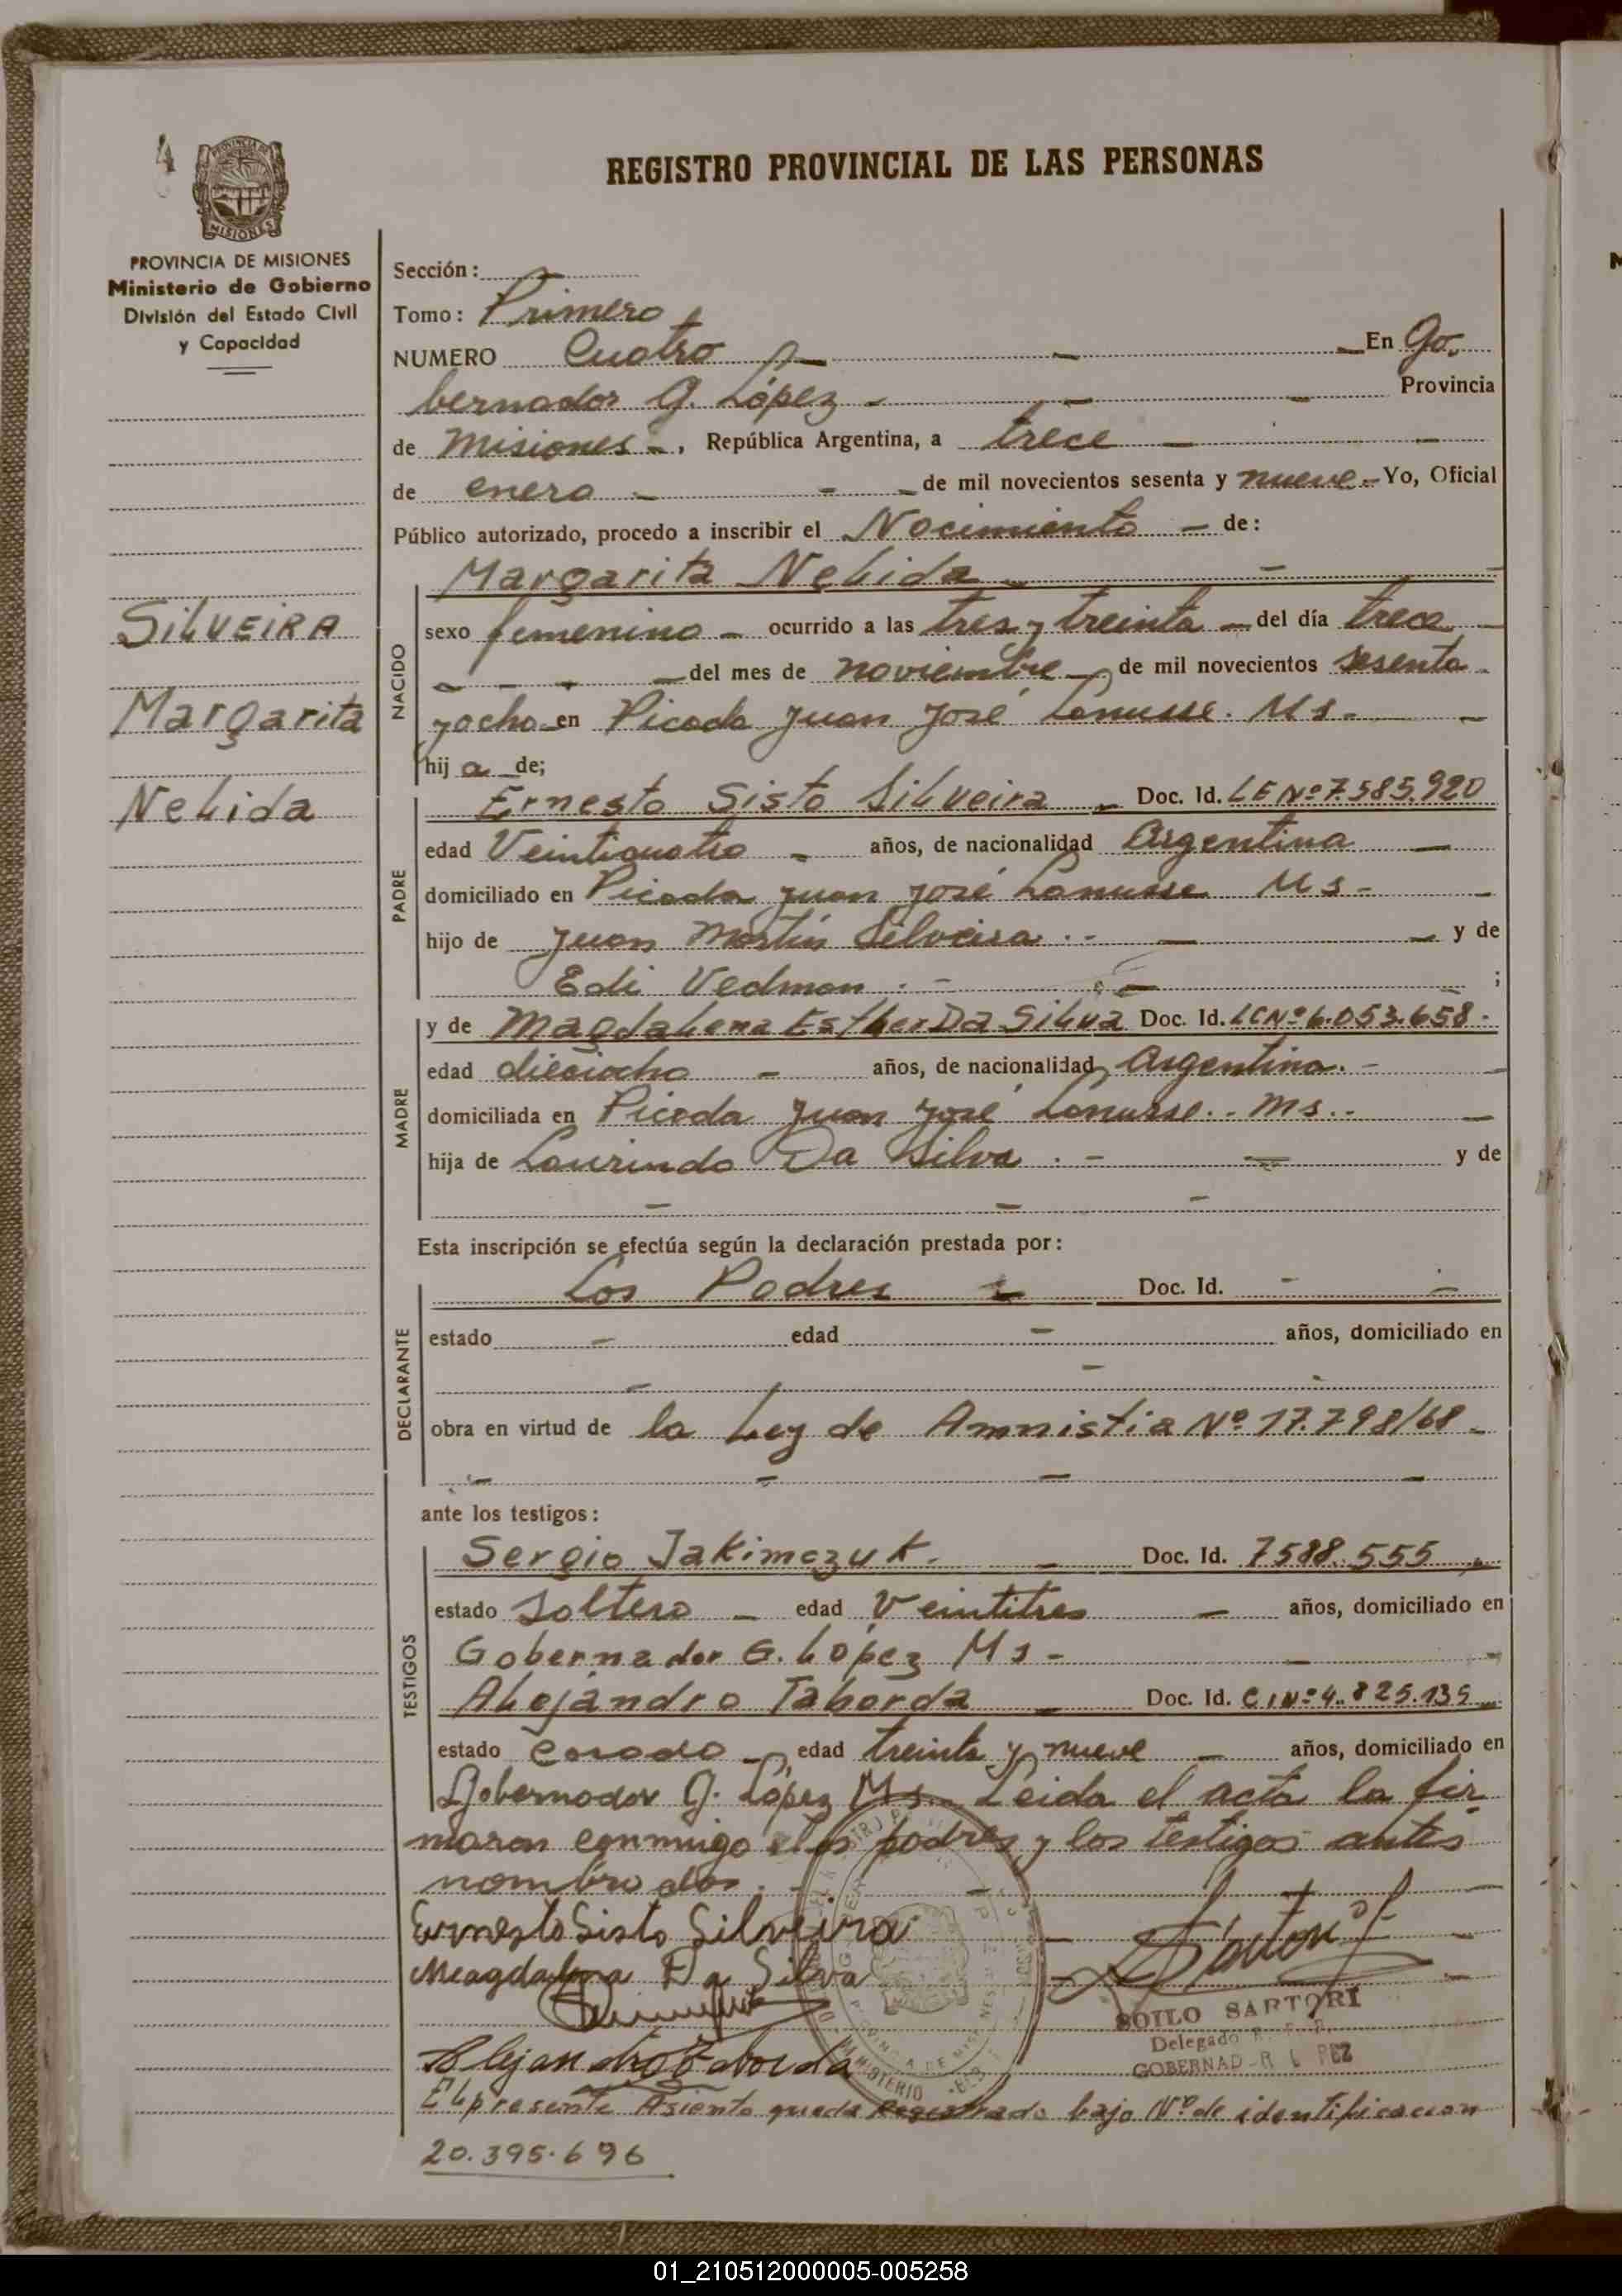 4
REGISTRO PROVINCIAL DE LAS PERSONAS
PROVINCIA DE
MISIONES
PROVINCIA DE MISIONES
Ministerio de Gobierno
División del Estado Civil
y Capacidad
SILVEIRA
Margarita
Nelida
Sección: -
Tomo: Primero
NUMERO Cuatro - En Go-
bernador G. López - Provincia
de Misiones -, República Argentina, a trece -
de enero - de mil novecientos sesenta y nueve - Yo, Oficial
Público autorizado, procedo a inscribir el Nacimiento - de:
NACIDO
Margarita Nelida -
sexo femenino - ocurrido a las tres y treinta - del día trece -
- del mes de noviembre - de mil novecientos sesenta
y ocho - en Picada Juan José Lanusse. Ms. -
hij a de;
PADRE
Ernesto Sisto Silveira - Doc. Id. LE Nº 7.585.920
edad Veinticuatro - años, de nacionalidad Argentina -
domiciliado en Picada Juan José Lanusse Ms -
hijo de Juan Martín Silveira .- - y de
Edi Vedman . - ;
MADRE
y de Magdalena Esther Da Silva Doc. Id. LC Nº 6.053.658 -
edad dieciocho - años, de nacionalidad Argentina. -
domiciliada en Picada Juan José Lanusse.. Ms.. -
hija de Laurindo Da Silva . - y de
- - -
Esta inscripción se efectúa según la declaración prestada por:
DECLARANTE
Los Padres - Doc. Id. - -
estado - edad - años, domiciliado en
- - -
obra en virtud de la Ley de Amnistia Nº 17.798/68 -
- - - -
ante los testigos:
TESTIGOS
Sergio Jakimczuk. - Doc. Id. 7588.555 -
estado Soltero - edad Veintitres - años, domiciliado en
Gobernador G. López Ms -
Alejandro Taborda - Doc. Id. C I Nº 4.825.135
estado Casado - edad treinta y nueve - años, domiciliado en
Gobernador G. López Ms.- Leida el acta la fir
maron conmigo los padres y los testigos antes
nombrados . -
Ernesto Sisto Silveira
Magdalena Da Silva
Alejandro Taborda
SOILO SARTORI
Delegado
GOBERNADOR L PEZ
MINISTERIO
El presente Asiento queda Registrado bajo Nº de identificacion
20.395.696
01_210512000005-005258